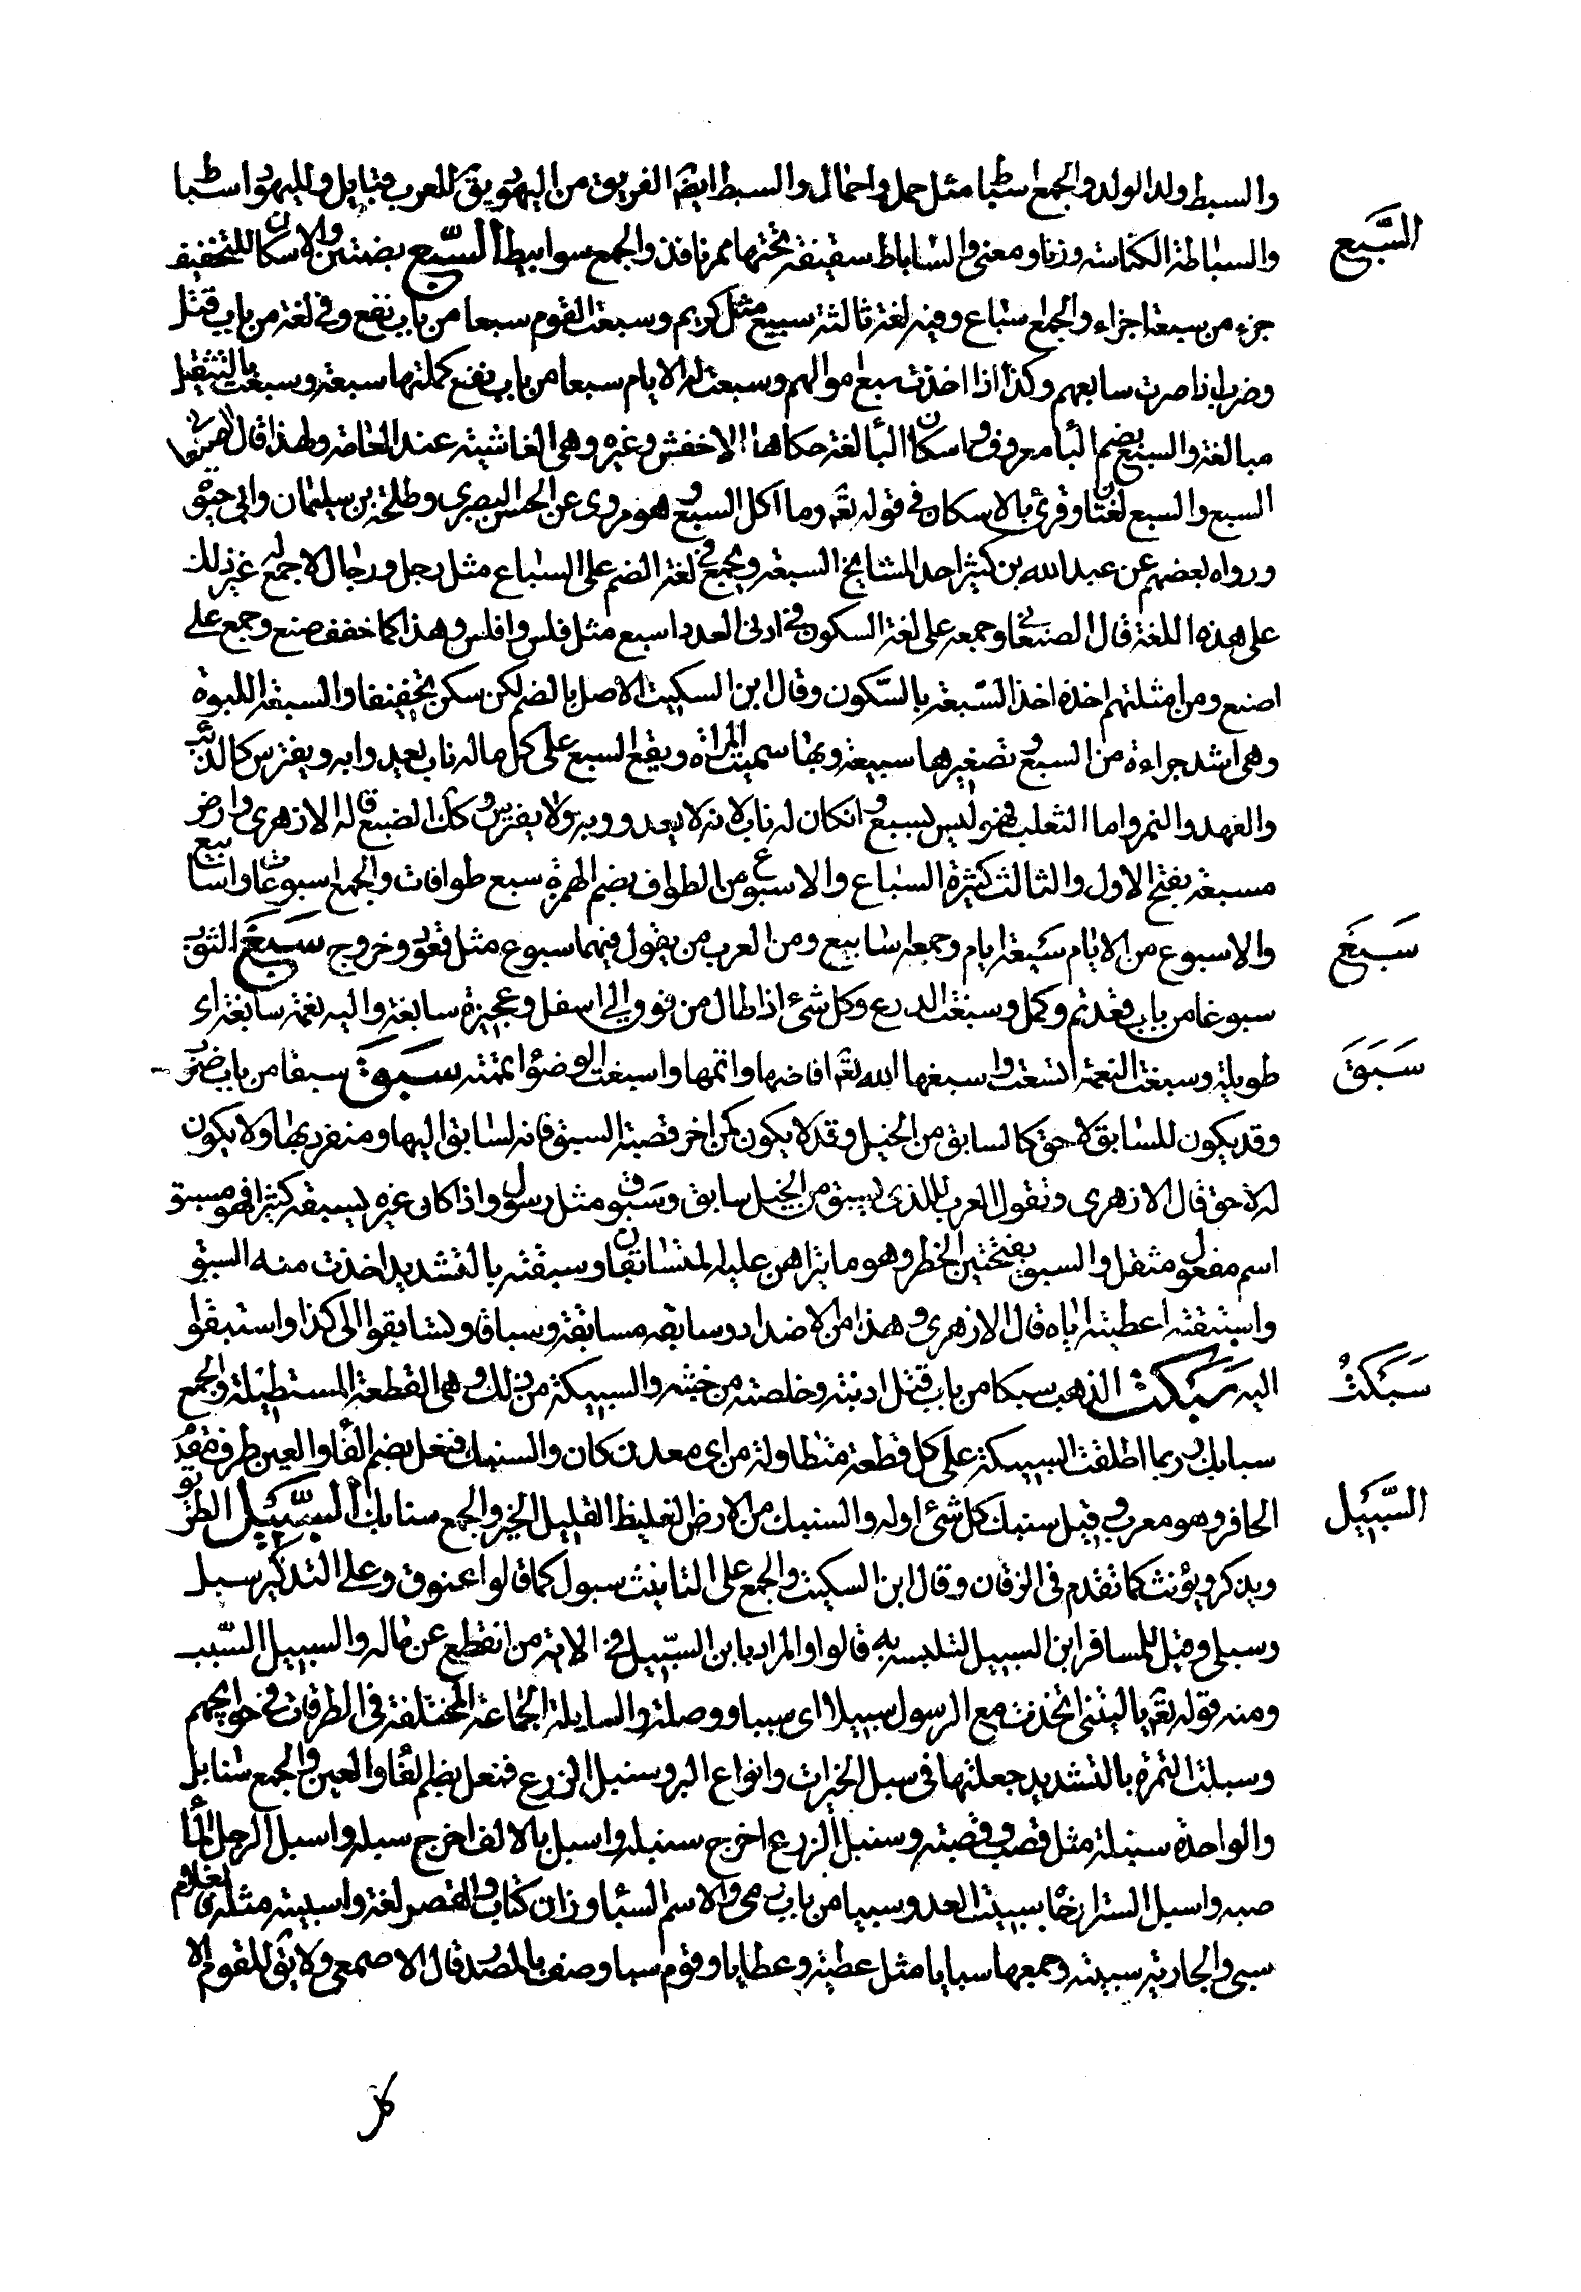 والسبط ولد الولد والجمع اسباط مثل حمل واحمال والسبط ايضا الفريق من اليهود يق للعرب قبايل ولليهود اسباط
السُّبع
والسباطة الكناسة وزنا ومعنى والساباط سقيفة تحتها ممر نافذ والجمع سوابيط السُّبع بضمتين والاسكان للتخفيف
جزء من سبعة اجزاء والجمع اسباع وفيه لغة ثالثة سبيع مثل كريم وسبعت القوم سبعا من باب نفع وفي لغة من باب قتل
وضرب اذا صرت سابعهم وكذا اذا اخذت سبع اموالهم وسبعت له الايام سبعا من باب نفع كملتها سبعة وسبعت بالتثقيل
مبالغة والسبع بضم الباء معروف واسكان الباء لغة حكاها الاخفش وغيره وهي الفاشية عند العامة ولهذا قال الصغاني
السبع والسبع لغتان وقرئ بالاسكان في قوله تعّ وما اكل السبع وهو مروي عن الحسن البصري وطلحة بن سليمان وابي حيوة
ورواه بعضهم عن عبد الله بن كثير احد المشايخ السبعة ويجمع في لغة الضم على السباع مثل رجل ورجال لا جمع له غير ذلك
على هذه اللغة قال الصغاني وجمعه على لغة السكون في ادنى العدد اسبع مثل فلس وافلس وهذا كما خفف ضبع وجمع على
اضبع ومن امثلتهم اخذه اخذ السبعة بالسّكون وقال ابن السكيت الاصل بالضم لكن سكن تخفيفا والسبعة اللبوة
وهي اشد جراءة من السبع وتصغيرها سبيعة وبها سميت المراة ويقع السبع على كل ماله ناب يعدو به ويفترس كالذئب
والفهد والنمر واما الثعلب فهو ليس بسبع وانكان له ناب لانه لا يعدو به ولا يفترس وكذلك الضبع قاله الازهري وارض
مسبعة بفتح الاول والثالث كثيرة السباع والاسبوع من الطواف بضم الهمزة سبع طوافات والجمع اسبوعات واسابيع
سَبَغَ
والاسبوع من الايام سبعة ايام وجمعه اسابيع ومن العرب من يقول فيهما سبوع مثل قعود وخروج سَبَغَ الثوب
سبوغا من باب قعد تم وكمل وسبغت الدرع وكل شئ اذا طال من فوق الى اسفل وعجيزة سابغة والية نعمة سابغة اي
سَبَقَ
طويلة وسبغت النعمة اتسعت واسبغها الله تعّ افاضها واتمها واسبغت الوضوء اتممته سَبَقَ سبقا من باب ضرب
وقد يكون للسابق لاحق كالسابق من الخيل وقد لا يكون كمن احرز قصبة السبق فانه سابق اليها ومنفرد بها ولا يكون
له لاحق قال الازهري وتقول العرب للذي يسبق من الخيل سابق وسَبوق مثل رسول واذا كان غيره يسبقه كثيرا فهو مسبق
اسم مفعول مثقل والسبق بفتحتين الخطر وهو ما يتراهن عليه المتسابقان وسبقته بالتشديد اخذت منه السبق
واسبقته اعطيته اياه قال الازهري وهذا من الاضداد وسابقه مسابقة وسباقا وتسابقوا الى كذا واستبقوا
سَبَكتُ
اليه سَبَكتُ الذهب سبكا من باب قتل اذبته وخلصته من خبثه والسبيكة من ذلك وهي القطعة المستطيلة والجمع
سبايك وربما اطلقت السبيكة على كل قطعة متطاولة من اي معدن كان والسنبك فنعل بضم الفاء والعين طرف مقدم
السَّبيل
الحافر وهو معرب وقيل سنبك كل شئ اوله والسنبك من الارض الغليظ القليل الخير والجمع سنابك السَّبيل الطريق
ويذكر ويؤنث كما تقدم في الزقاق وقال ابن السكيت والجمع على التانيث سبول كما قالوا عنوق وعلى التذكير سبل
وسبل وقيل للمسافر ابن السبيل لتلبسه به قالوا والمراد بابن السبيل في الاية من انقطع عن ماله والسبيل السّبب
ومنه قوله تعّ يا ليتني اتخذت مع الرسول سبيلا اي سببا ووصلة والسابلة الجماعة المختلفة في الطرقات في حوايجهم
وسبلت الثمرة بالتشديد جعلتها في سبل الخيرات وانواع البر وسنبل الزرع فنعل بضم الفاء والعين والجمع سنابل
والواحدة سنبلة مثل قصب وقصبة وسنبل الزرع اخرج سنبله واسبل بالالف اخرج سبله واسبل الرجل الماء
صبه واسبل الستر ارخاه سبيت العدو سبيا من باب رمى والاسم السباء وزان كتاب والقصر لغة واسبيته مثله فالغلام
سبي والجارية سبية وجمعها سبايا مثل عطية وعطايا وقوم سبي وصف بالمصدر قال الاصمعي ولا يق للقوم الا